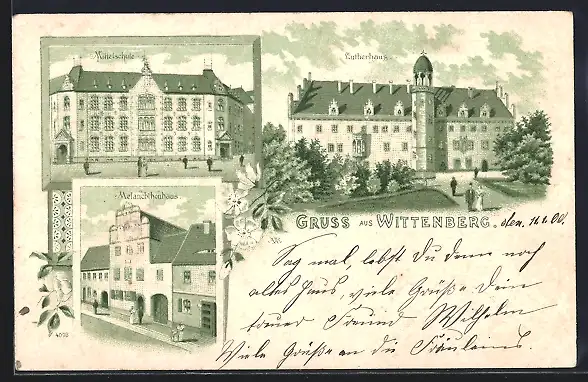 Mittelschule
Lutherhaus
Melanchthonhaus
GRUSS AUS WITTENBERG. den, 16.2.00.
Sag mal, lebst Du denn noch
altes Haus, viele Grüße Dein
treuer Freund Wilhelm
Viele Grüße an die Fräuleins.
4090